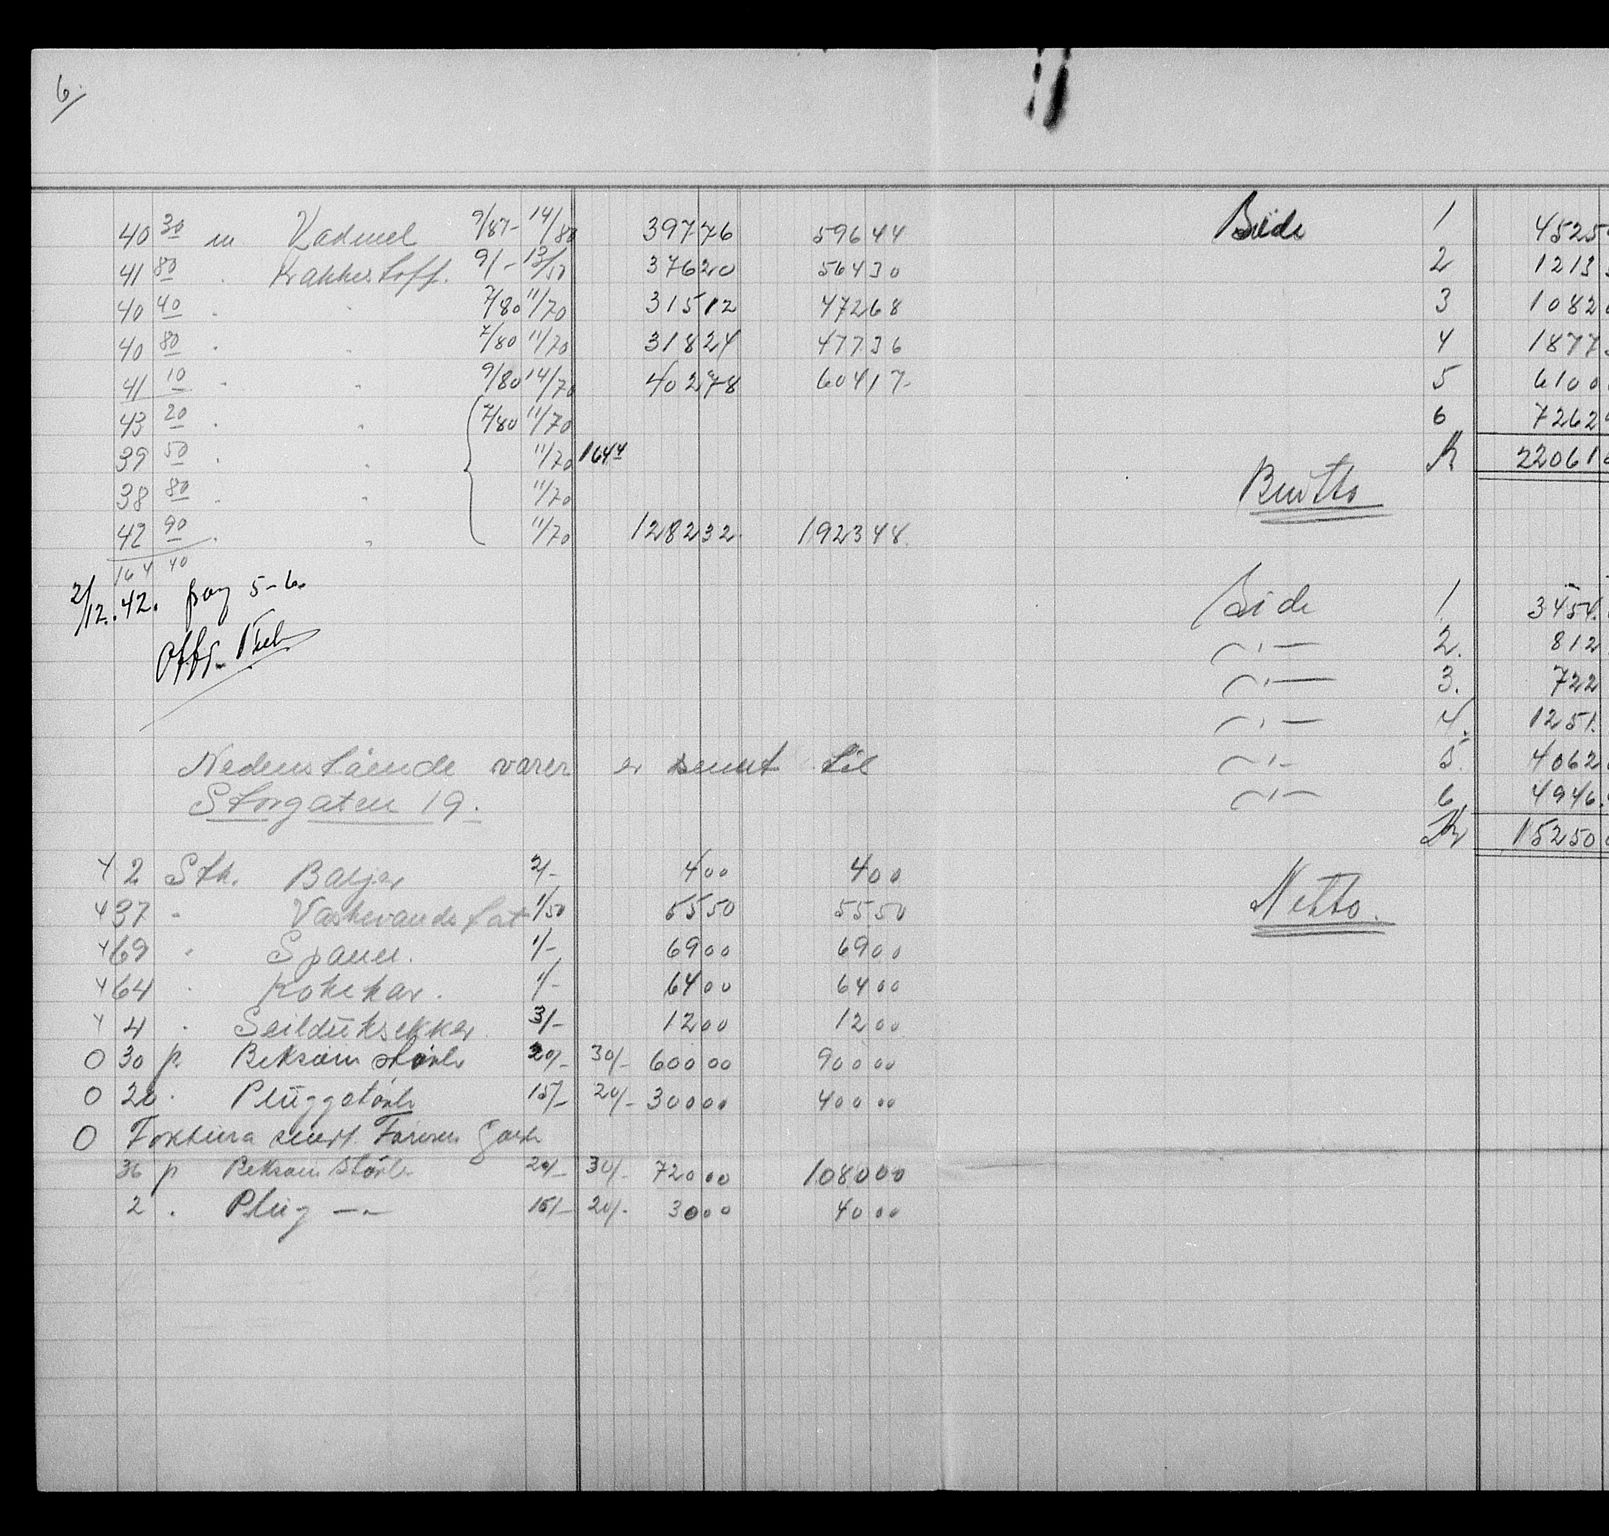 6.
40 30 m Kadmel 9/87- 14/80 397 76 596 44
41 80 . Kakkestoff. 9/- 13/50 376 20 564 30
40 40 . . 7/80 11/70 315 12 472 68
40 80 . . 7/80 11/70 318 24 477 36
41 10 . . 9/80 14/70 402 78 604 17-
43 20 . 7/80 11/70
39 50 . . 11/70 164 4
38 80 . . 11/70
42 90 . . 11/70 1282 32 1923 48.
164 40
2/12.42. pag 5-6.
Nedenstående varer er sendt til
Storgaten 19.
2 Stk. Baljer 2/- 4 00 4 00
37 " Vaskevandsfat 1/50 55 50 55 50
69 " Spaner. 1/- 69 00 69 00
64 " Kokekar. 1/- 64 00 64 00
4 " Seilduksekker 3/- 12 00 12 00
O 30 p. Beksøm støvle 20/- 30/- 600 00 900 00
O 20 . Pluggstøvle 15/- 20/- 300 00 400 00
O Faktura sendt
36 p Beksøm støvle 20/- 30/- 720 00 1080 00
2 . Plug -"- 15/- 20/- 30 00 40 00
Side 1 4525
2 1213
3 1082
4 1877
5 6100
6 7262
Kr 22061
Brutto
Side 1 3454.
-"- 2. 812
-"- 3. 722
-"- 4. 1251.
-"- 5. 4062
-"- 6 4946.
Kr 15250
Netto.